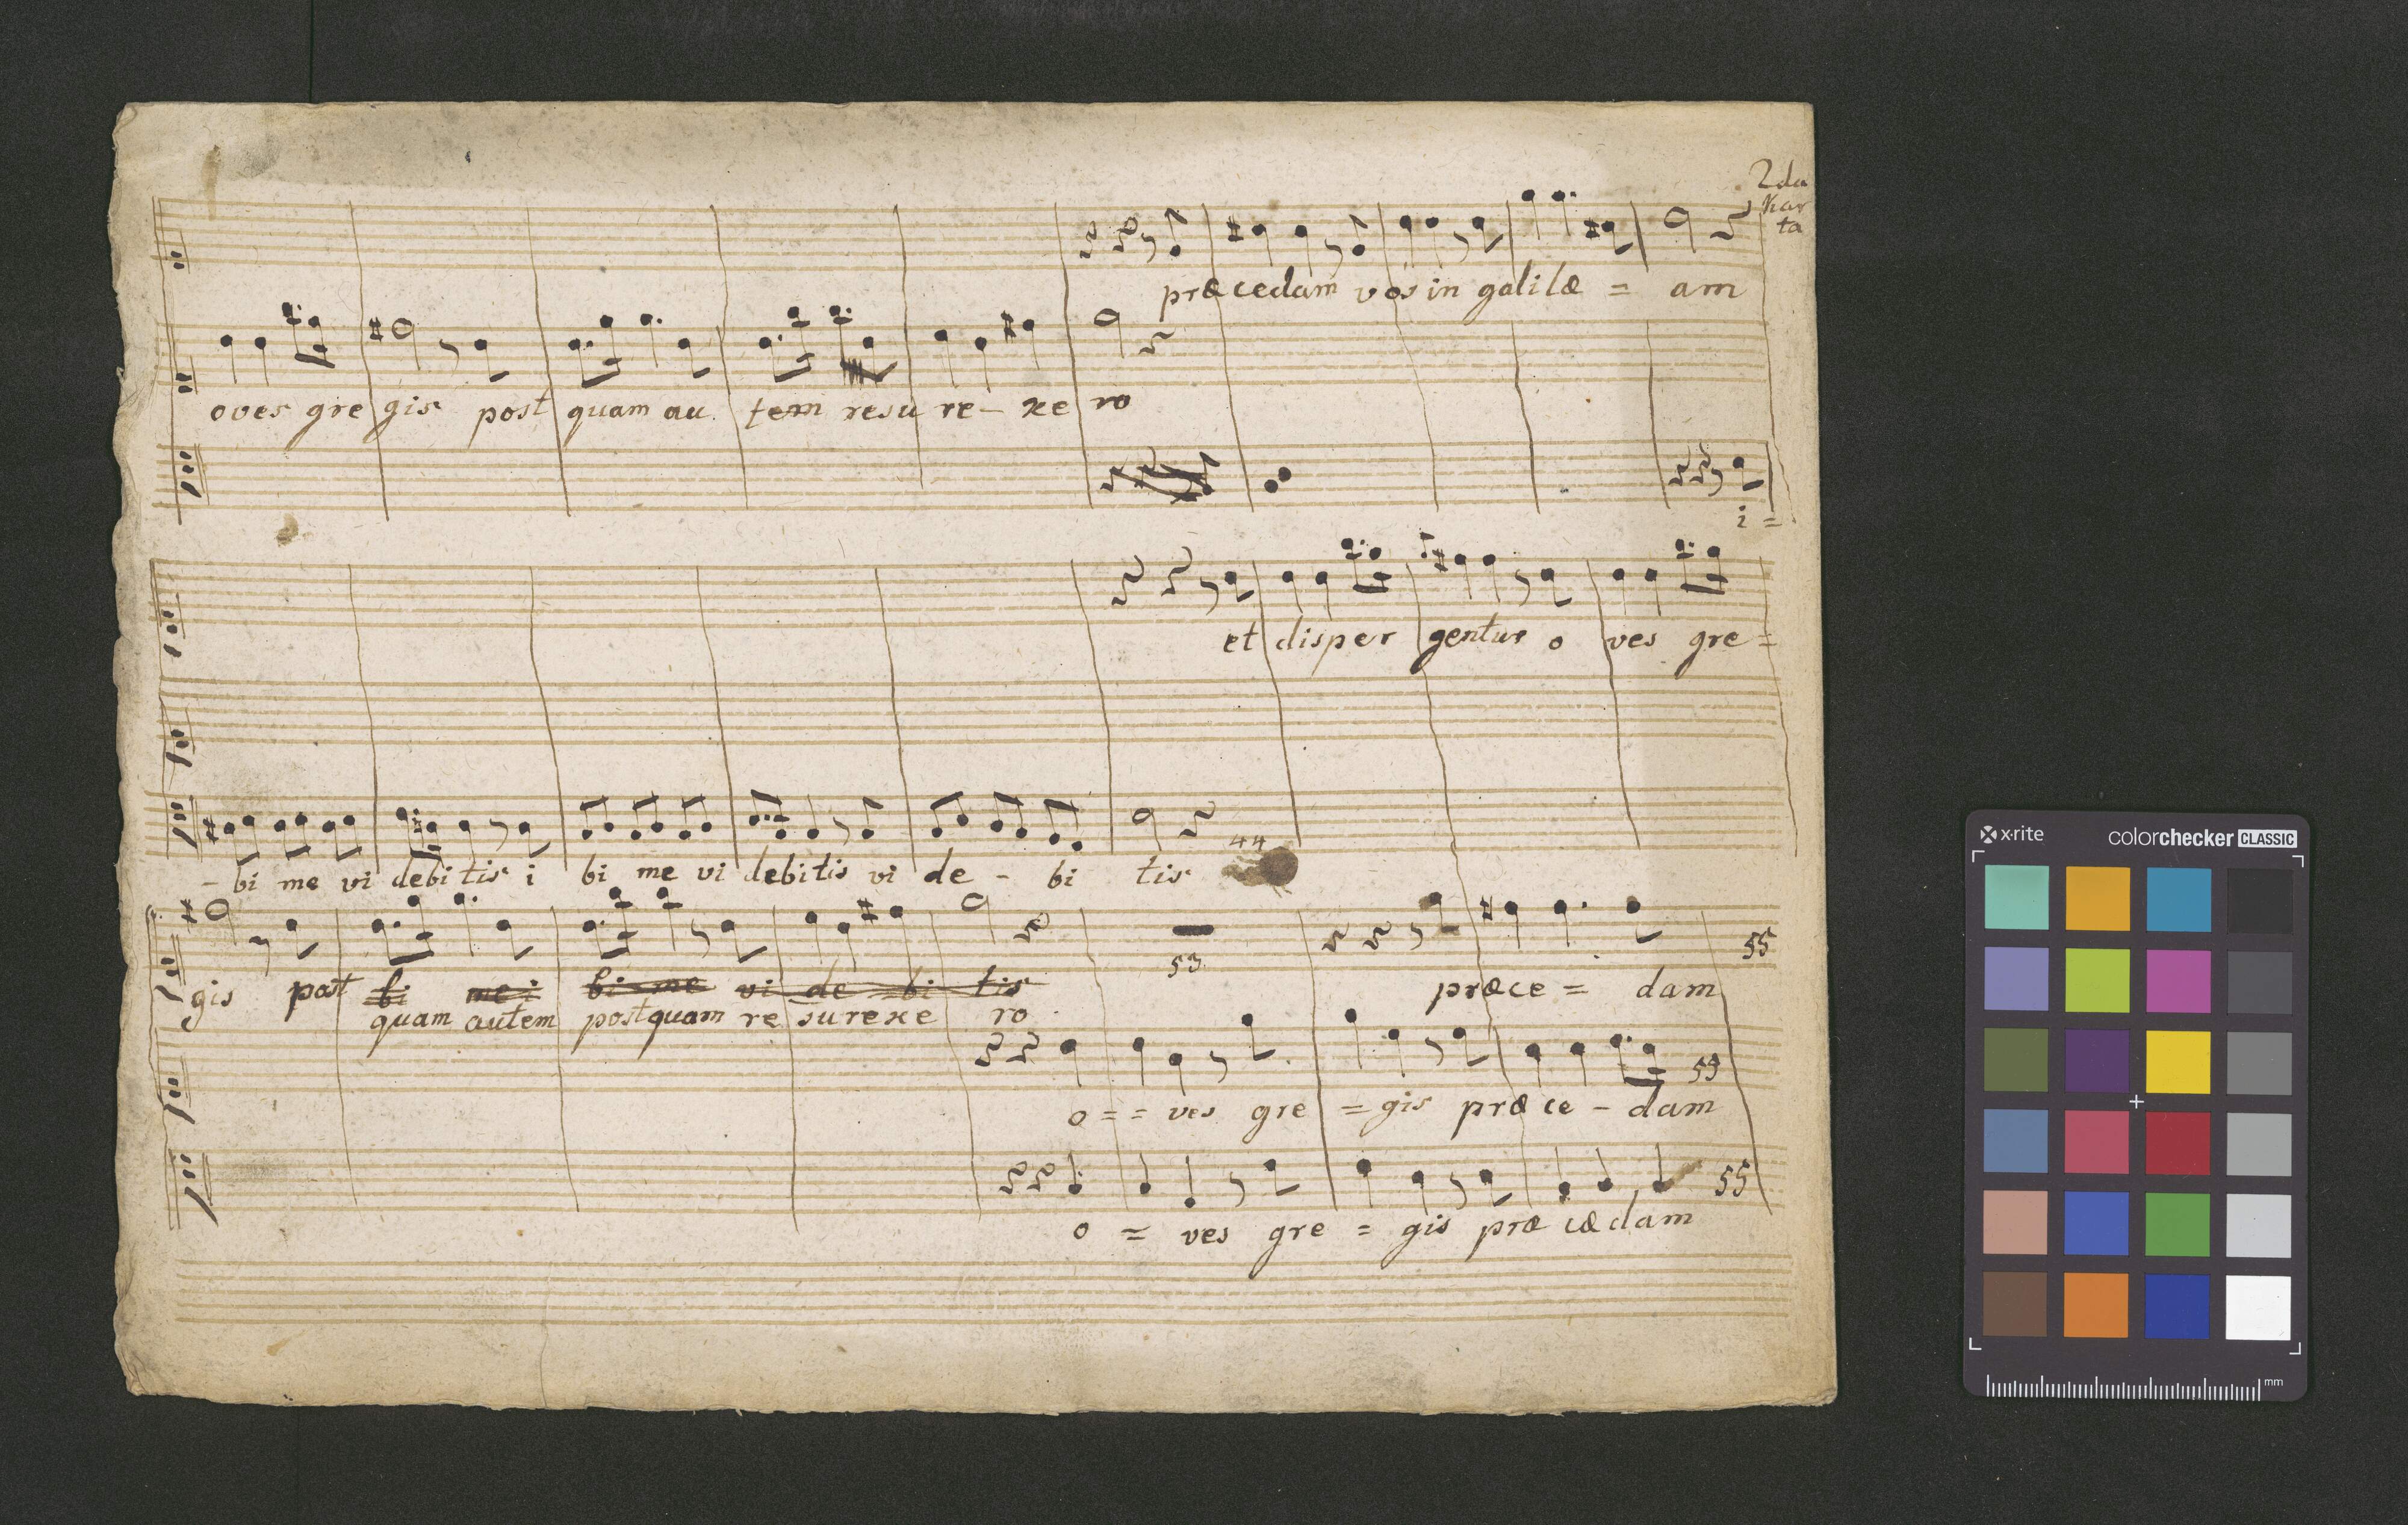 2da
Kar
ta
præcedam vos in galilæ = am
oves gre gis post quam au tem resu re - xe ro
i =
et disper gentur o ves gre =
44
- bi me vi debi tis i bi me vi debitis vi de - bi tis
53
55
gis post bi me i bi me vi de = bi tis præce = dam
quam autem postquam re surexe ro
53
o = = ves gre = gis præ ce - dam
55
o = ves gre = gis præ cædam
x·rite colorchecker CLASSIC
mm